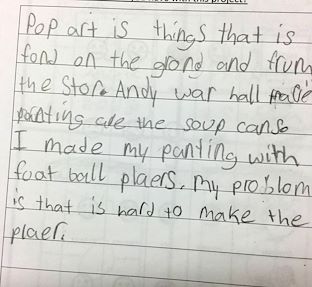 Pop art is things that is
fond on the grond and frum
the Store Andy war hall made
painting are the soup canse
I made my panting with
foat ball plaers. My problom
is that is hard to make the
plaer.